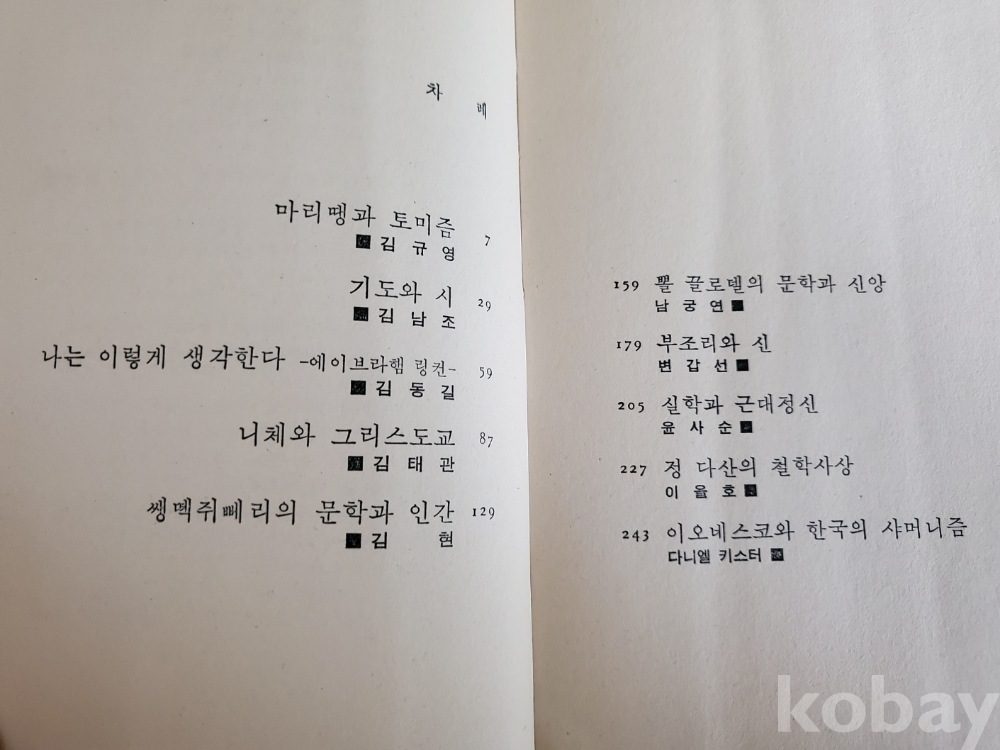 차 례
마리땡과 토미즘 7
김 규 영
기도와 시 29
김 남 조
나는 이렇게 생각한다 -에이브라햄 링컨- 59
김 동 길
니체와 그리스도교 87
김 태 관
쌩떽쥐뻬리의 문학과 인간 129
김 현
159 뽈 끌로델의 문학과 신앙
남 궁 연
179 부조리와 신
변 갑 선
205 실학과 근대정신
윤 사 순
227 정 다산의 철학사상
이 을 호
243 이오네스코와 한국의 샤머니즘
다니엘 키스터
kobay